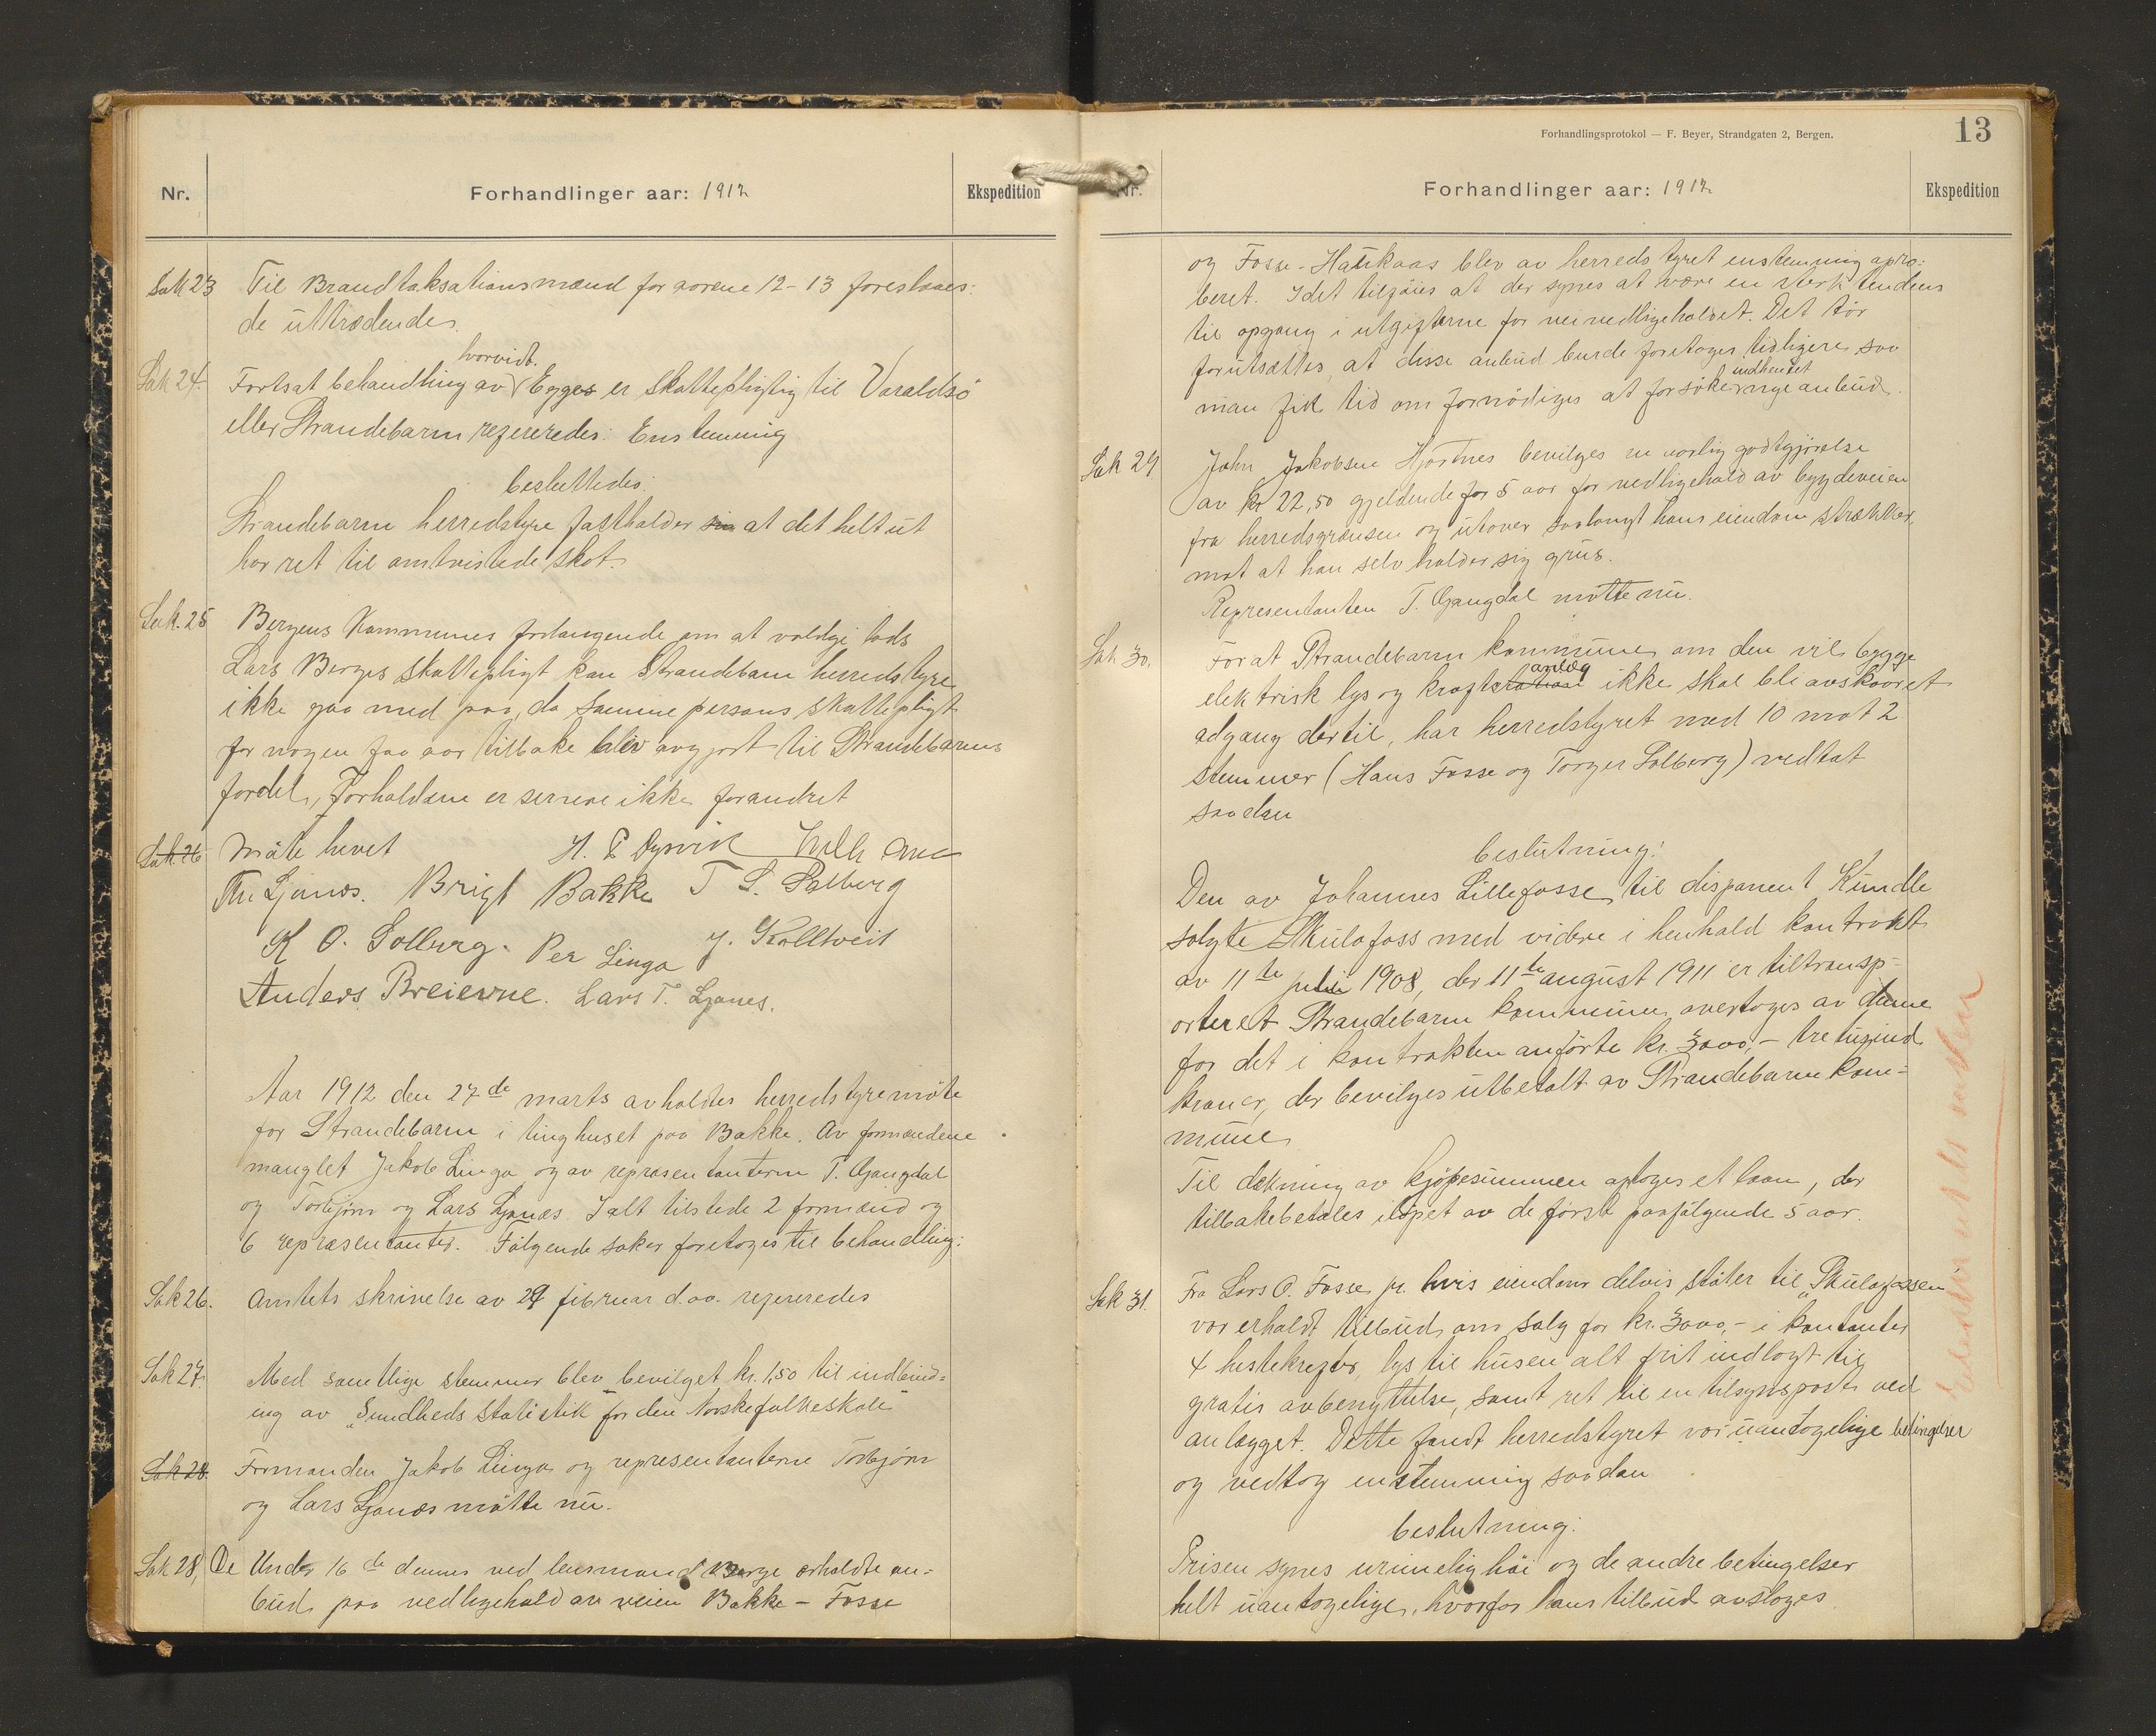 Nr. Forhandlinger aar: 1912 Ekspedition
Sak 23 Til Brandtaksationsmænd for aarene 12-13 foreslaaes:
de uttrædende.
hvorvidt.
Sak 24. Fortsat behandling av Egges er skattepligtig til Varaldsö
eller Strandebarm refereredes. Enstemmig
besluttedes:
Strandebarm herredstyre fastholder sin at det helt ut
har ret til omtvistede skat.
Sak. 25 Bergens Kommunes forlangende om at vedgi lods
Lars Berges skattepligt kan Strandebarm herredstyre
ikke gaa med paa, da samme persons skattepligt
for nogen faa aar tilbake blev avgjort til Strandebarms
fordel, Forholdene er senere ikke forandret
Sak 26 Möte hevet H. P. Dysvik
Th. Ljones. Brigt Bakke T S. Solberg
K O. Solberg. Per Linga J. Kolltveit
Anders Breierne. Lars T. Ljones.
Aar 1912 den 27de marts avholdtes herredstyremöte
for Strandebarm i tinghuset paa Bakke. Av formændene
manglet Jakob Linga og av repræsentanterne T. Gangdal
og Torbjörn og Lars Ljones. Ialt tilstede 2 formænd og
6 repræsentanter. Fölgende saker foretoges til behandling:
Sak 26. Amtets skrivelse av 29 februar d.aa. refereredes
Sak 27. Med samtlige stemmer blev bevilget kr. 1,50 til indbind=
ing av "Sundheds statistik for den Norske folkeskole"
Sak 28. Formanden Jakob Linga og representanterne Torbjörn
og Lars Ljones mötte nu.
Sak 28, De Under 16de dennes ved lensmand Berge erholdte an=
bud paa vedligehold av veien Bakke - Fosse
Forhandlingsprotokol — F. Beyer, Strandgaten 2, Bergen. 13
Nr. Forhandlinger aar: 1912 Ekspedition
og Fosse-Haukaas blev av herredstyret enstemmig apro:
beret. Idet tilföies at der synes at være en sterk tendens
til opgang i utgifterne for veivedligeholdet. Det tör
forutsættes, at disse anbud burde foretages tidligere saa
indhentet
man fik tid om fornödiges at forsöke nye anbud.
Sak 29 John Jakobsen Hjartnes bevilges en aarlig godtgjörelse
av kr 22,50 gjeldende for 5 aar for vedligehold av bygdeveien
fra herredsgrænsen og utover saalangt hans eiendom strækker,
mot at han selv holder sig grus.
Representanten T. Gangdal mötte nu.
Sak 30. For at Strandebarm kommune om den vil bygge
anlæg
elektrisk lys og kraftstation ikke skal bli avskaaret
adgang dertil, har herredstyret med 10 mot 2
stemmer (Hans Fosse og Torger Solberg) vedtat
saadan
beslutning:
Den av Johannes Lillefosse til disponent Kindle
solgte Skulafoss med videre i henhold kontrakt
av 11te juli 1908, der 11te august 1911 er tiltransp-
orteret Strandebarm kommune, overtoges av denne
for det i kontrakten anförte kr. 3000,- tretusind
kroner, der bevilges utbetalt av Strandebarm kom=
mune
Til dækning av kjöpesummen optoges et laan, der
tilbakebetales ilöpet av de först paafölgende 5 aar.
Sak 31. Fra Lars O. Fosse jr. hvis eiendom delvis stöter til "Skulafossen"
var erholdt tilbud om salg for kr. 3000,- i kontanter
4 hestekrefter, lys til husen alt frit indlagt til
gratis avbenyttelse, samt ret til en tilsynspost ved
anlægget. Dette fandt herredstyret var uantagelige betingelser
og vedtog enstemmig saadan
beslutning:
Prisen synes urimelig höi og de andre betingelser
helt uantagelige, hvorfor hans tilbud avsloges.